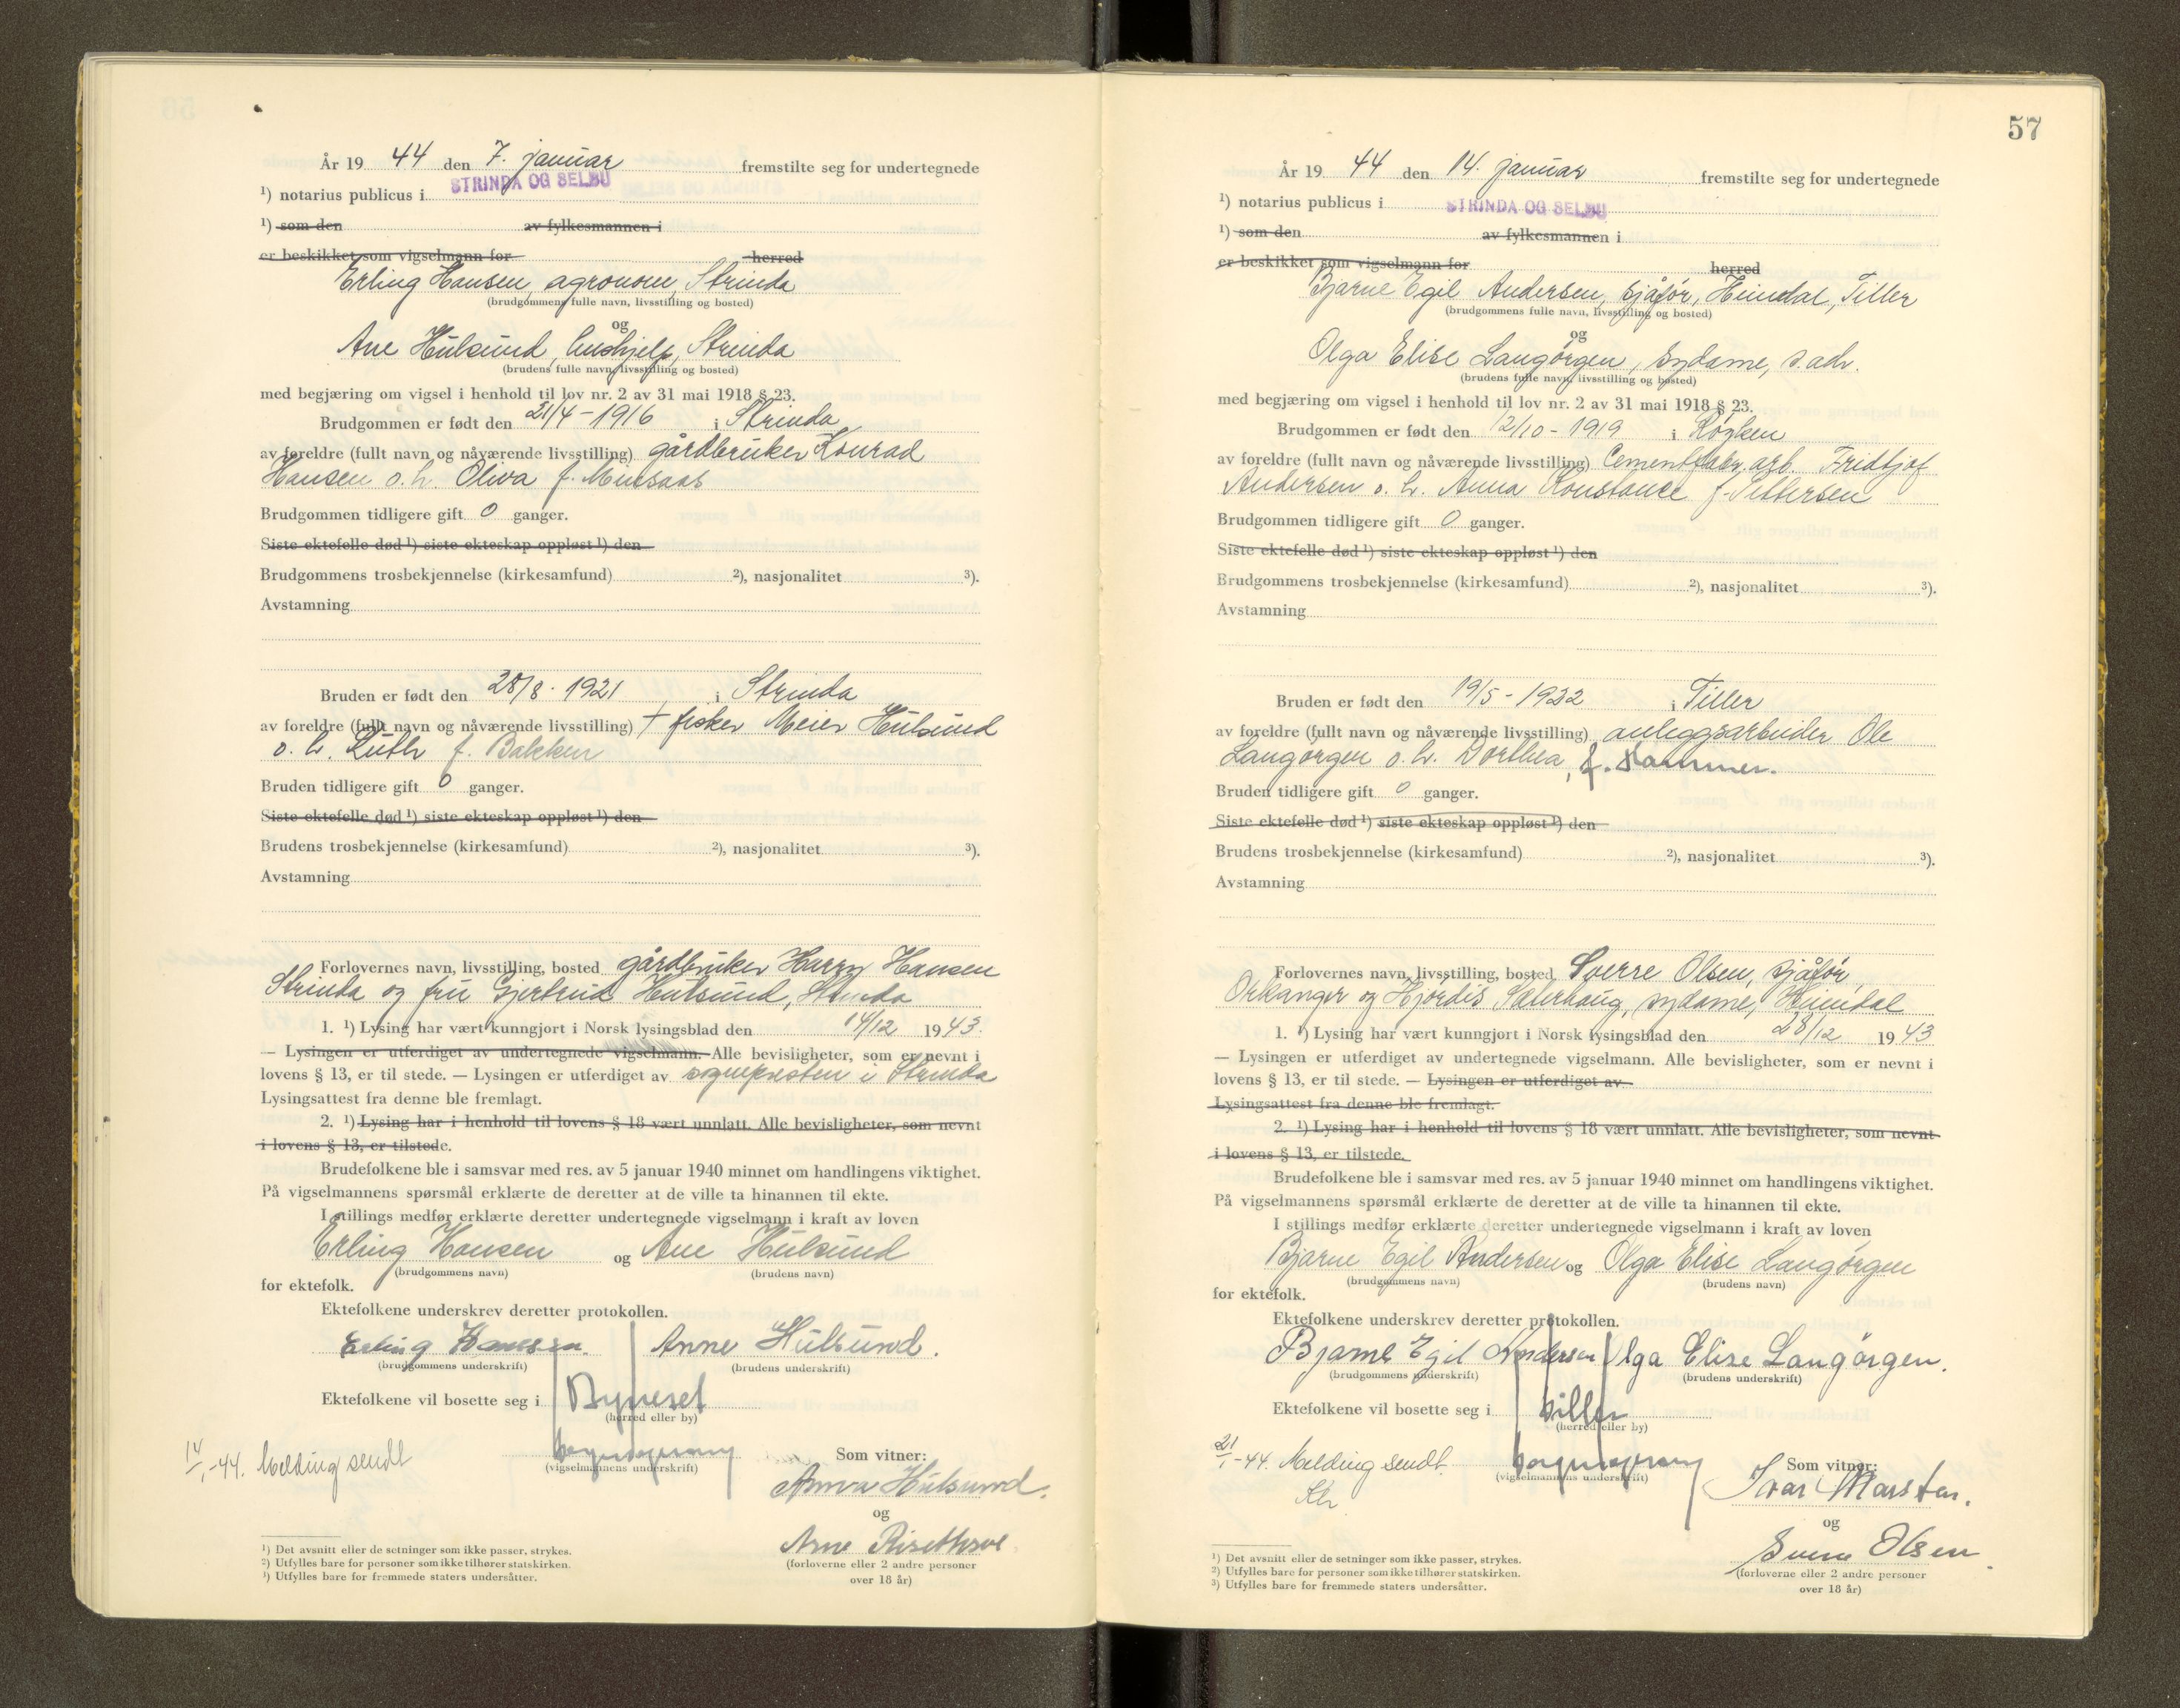 År 19 44 den 7. januar fremstilte seg for undertegnede
¹) notarius publicus i STRINDA OG SELBU
¹) som den av fylkesmannen i
er beskikket som vigselmann for herred
Erling Hansen, agronom, Strinda
(brudgommens fulle navn, livsstilling og bosted)
og
Ane Hulsund, hushjelp, Strinda
(brudens fulle navn, livsstilling og bosted)
med begjæring om vigsel i henhold til lov nr. 2 av 31 mai 1918 § 23.
Brudgommen er født den 21/4 - 1916 i Strinda
av foreldre (fullt navn og nåværende livsstilling) gårdbruker Konrad
Hansen o. h. Oliva f.
Brudgommen tidligere gift 0 ganger.
Siste ektefelle død ¹) siste ekteskap oppløst ¹) den
Brudgommens trosbekjennelse (kirkesamfund) ²), nasjonalitet ³).
Avstamning
Bruden er født den 28/8 - 1921 i Strinda
av foreldre (fullt navn og nåværende livsstilling) † fisker Meier Hulsund
o. h. Ruth f. Bakken
Bruden tidligere gift 0 ganger.
Siste ektefelle død ¹) siste ekteskap oppløst ¹) den
Brudens trosbekjennelse (kirkesamfund) ²), nasjonalitet ³).
Avstamning
Forlovernes navn, livsstilling, bosted gårdbruker Harry Hansen
Strinda og fru Gjertrud Hulsund, Strinda
1. ¹) Lysing har vært kunngjort i Norsk lysingsblad den 14/12 1943.
— Lysingen er utferdiget av undertegnede vigselmann. Alle bevisligheter, som er nevnt i
lovens § 13, er til stede. — Lysingen er utferdiget av sognepresten i Strinda
Lysingsattest fra denne ble fremlagt.
2. ¹) Lysing har i henhold til lovens § 18 vært unnlatt. Alle bevisligheter, som nevnt
i lovens § 13, er tilstede.
Brudefolkene ble i samsvar med res. av 5 januar 1940 minnet om handlingens viktighet.
På vigselmannens spørsmål erklærte de deretter at de ville ta hinannen til ekte.
I stillings medfør erklærte deretter undertegnede vigselmann i kraft av loven
Erling Hansen og Ane Hulsund
(brudgommens navn) (brudens navn)
for ektefolk.
Ektefolkene underskrev deretter protokollen.
Erling Hanssen. Anne Hulsund.
(brudgommens underskrift) (brudens underskrift)
Ektefolkene vil bosette seg i Byneset
(herred eller by)
14/1-44. Melding sendt
(vigselmannens underskrift)
Som vitner:
Anna Hulsund.
og
Arne
(forloverne eller 2 andre personer
over 18 år)
¹) Det avsnitt eller de setninger som ikke passer, strykes.
²) Utfylles bare for personer som ikke tilhører statskirken.
³) Utfylles bare for fremmede staters undersåtter.
57
År 19 44 den 14. januar fremstilte seg for undertegnede
¹) notarius publicus i STRINDA OG SELBU
¹) som den av fylkesmannen i
er beskikket som vigselmann for herred
Bjarne Egil Andersen, sjåfør, Heimdal, Tiller
(brudgommens fulle navn, livsstilling og bosted)
og
Olga Elise Langørgen, sydame, s. adr.
(brudens fulle navn, livsstilling og bosted)
med begjæring om vigsel i henhold til lov nr. 2 av 31 mai 1918 § 23.
Brudgommen er født den 12/10 - 1919 i Røyken
av foreldre (fullt navn og nåværende livsstilling) Cementfabr. arb. Fridtjof
Andersen o. h. Anna Konstance f. Pettersen
Brudgommen tidligere gift 0 ganger.
Siste ektefelle død ¹) siste ekteskap oppløst ¹) den
Brudgommens trosbekjennelse (kirkesamfund) ²), nasjonalitet ³).
Avstamning
Bruden er født den 19/5 - 1922 i Tiller
av foreldre (fullt navn og nåværende livsstilling) anleggsarbeider Ole
Langørgen o. h. Dorthea, f. Hammer.
Bruden tidligere gift 0 ganger.
Siste ektefelle død ¹) siste ekteskap oppløst ¹) den
Brudens trosbekjennelse (kirkesamfund) ²), nasjonalitet ³).
Avstamning
Forlovernes navn, livsstilling, bosted Sverre Olsen, sjåfør,
Orkanger og Hjørdis Sæterhaug, sydame, Heimdal
1. ¹) Lysing har vært kunngjort i Norsk lysingsblad den 28/12 1943
— Lysingen er utferdiget av undertegnede vigselmann. Alle bevisligheter, som er nevnt i
lovens § 13, er til stede. — Lysingen er utferdiget av
Lysingsattest fra denne ble fremlagt.
2. ¹) Lysing har i henhold til lovens § 18 vært unnlatt. Alle bevisligheter, som nevnt
i lovens § 13, er tilstede.
Brudefolkene ble i samsvar med res. av 5 januar 1940 minnet om handlingens viktighet.
På vigselmannens spørsmål erklærte de deretter at de ville ta hinannen til ekte.
I stillings medfør erklærte deretter undertegnede vigselmann i kraft av loven
Bjarne Egil Andersen og Olga Elise Langørgen
(brudgommens navn) (brudens navn)
for ektefolk.
Ektefolkene underskrev deretter protokollen.
Bjarne Egil Andersen Olga Elise Langørgen.
(brudgommens underskrift) (brudens underskrift)
Ektefolkene vil bosette seg i Tiller
(herred eller by)
21/1-44. Melding sendt.
(vigselmannens underskrift)
Som vitner:
Ivar
og
Sverre Olsen.
(forloverne eller 2 andre personer
over 18 år)
¹) Det avsnitt eller de setninger som ikke passer, strykes.
²) Utfylles bare for personer som ikke tilhører statskirken.
³) Utfylles bare for fremmede staters undersåtter.